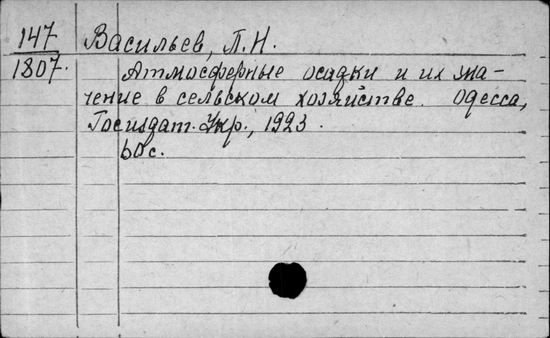 147
1807.
Васильев, П.Н.
Атмосферные осадки и их зна-
чение в сельском хозяйстве. Одесса,
Госиздат. Укр., 1923.
60с.